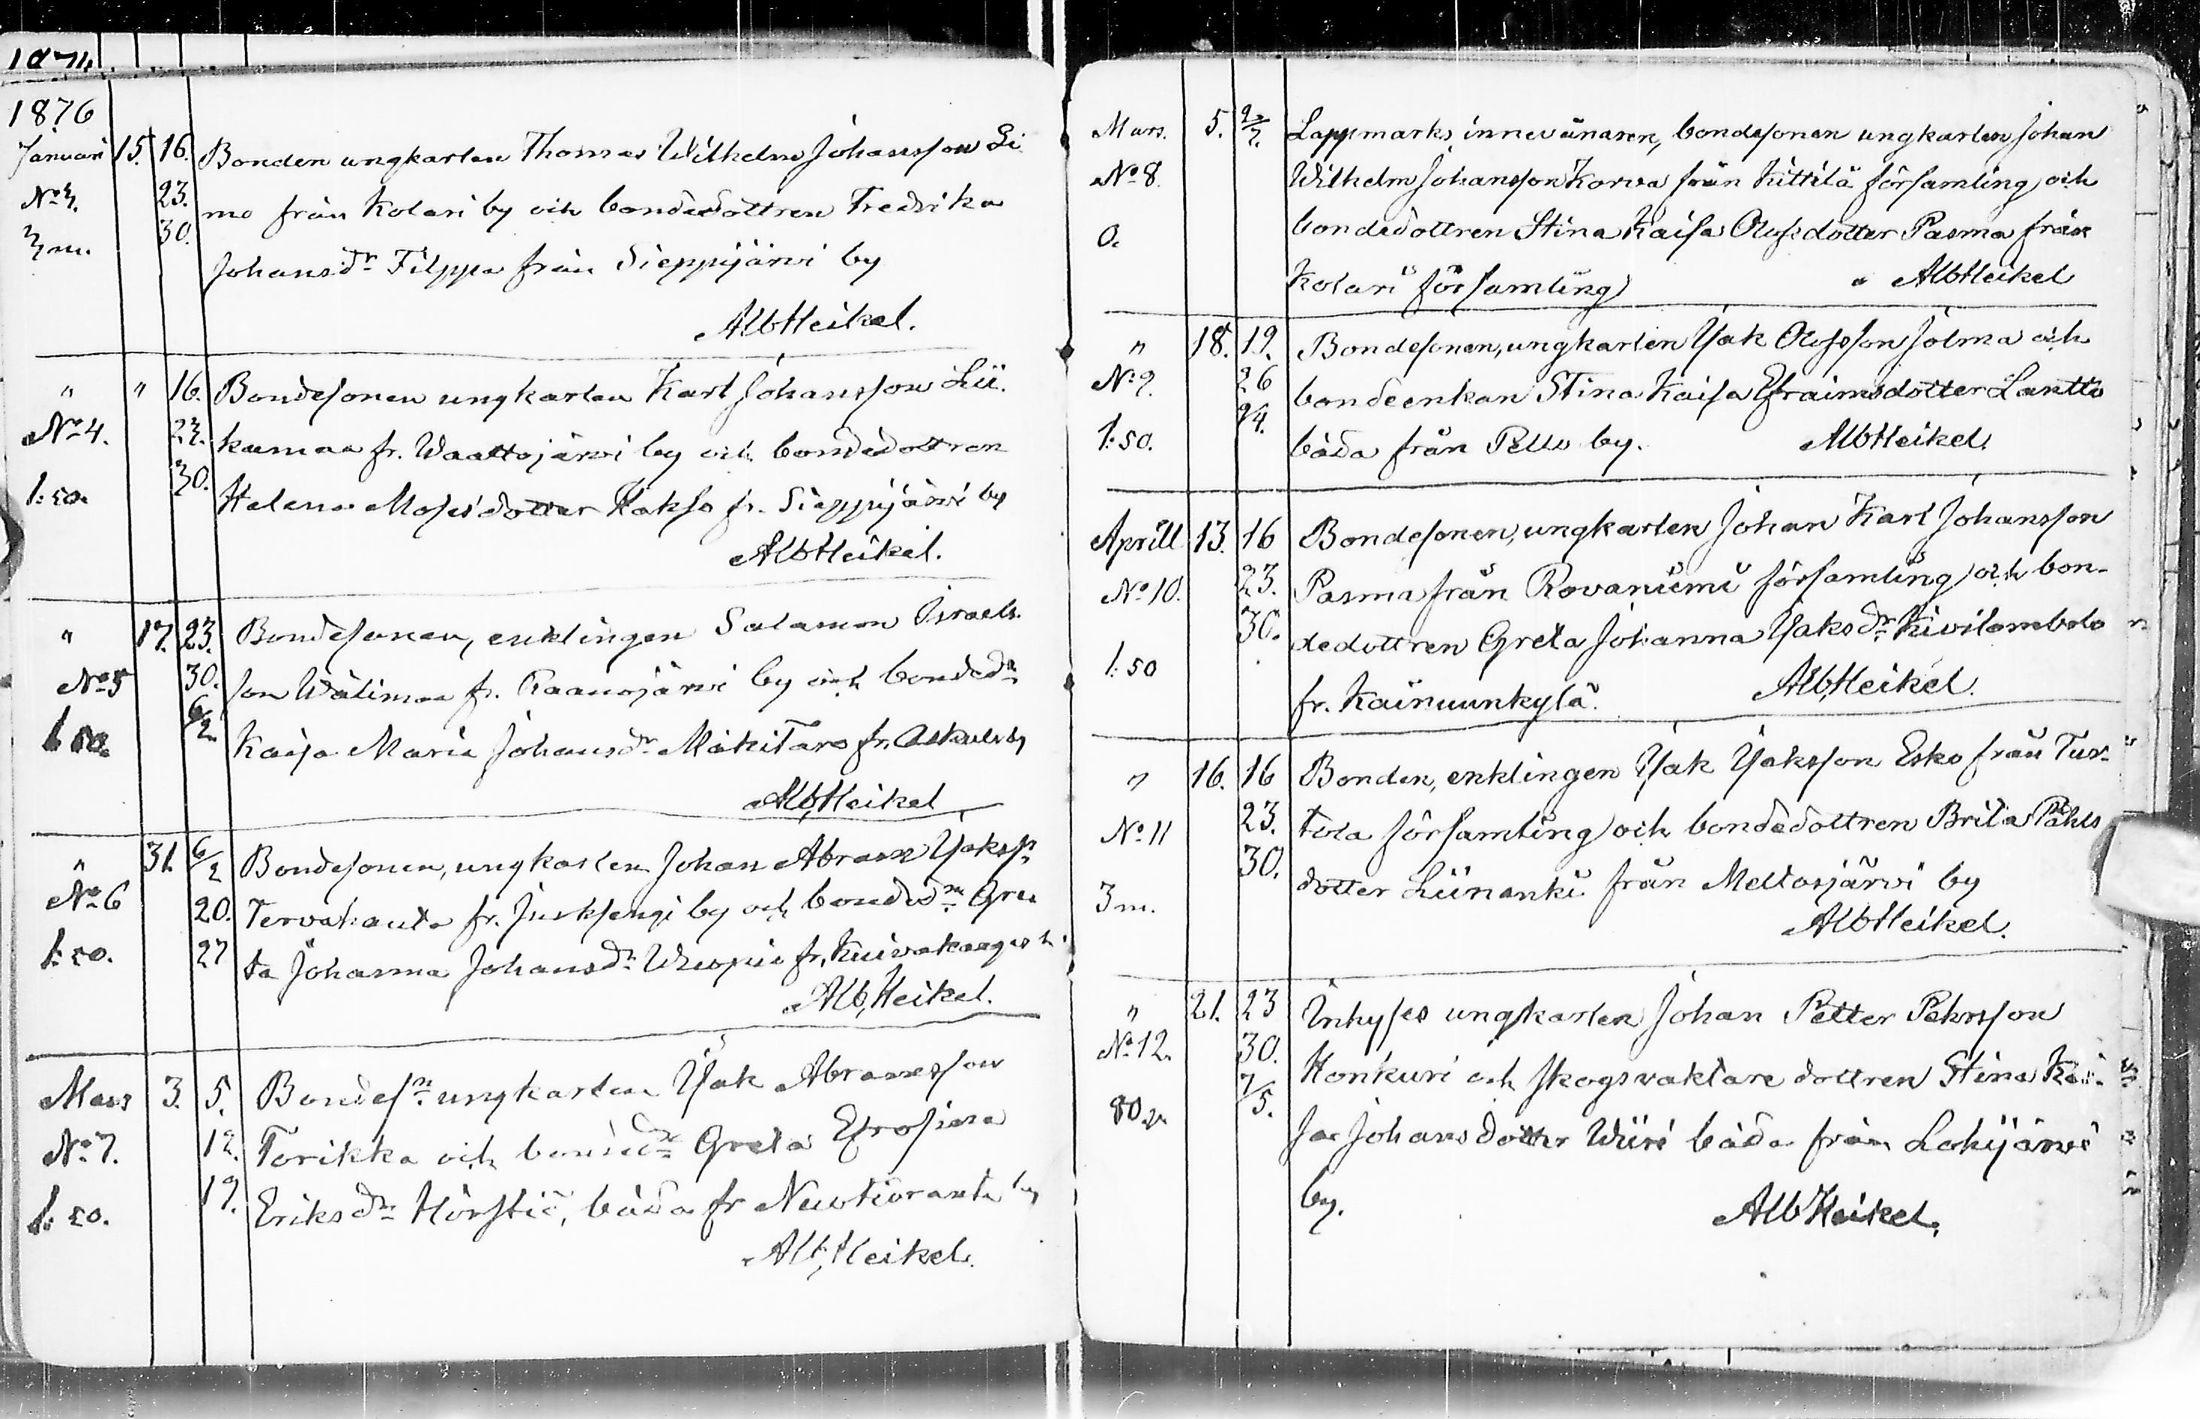 1876
Januari 15. 16. Bonden ungkarlen Thomas Wilhelm Johansson Si
No 3. 23. mo från Kolari by och bondedottren Fredrika
3 m. 30. Johansdr Filppa från Sieppijärvi by
Alb Heikel.
" " 16. Bondesonen ungkarlen Karl Johansson Lii
No 4. 23. kamaa fr. Waattojärvi by och bondedottren
1:50. 30. Helena Mosisdotter Kakso fr. Sieppijärvi by
Alb Heikel.
" 17. 23. Bondesonen, enklingen Salamon Israels
No 5 30. son Wälimaa fr. Raanojärvi by och bonded:n
1.50. 6/2 Kaisa Maria Johansdr Mäkitaro fr.
Alb, Heikel
" 31. 6/2 Bondesonen, ungkarlen Johan Abram Yaksn
No 6 20. Tervahauta fr. Juoksengi by och bonded:n Gre
1:50. 27 ta Johanna Johansdr fr. Kuivakangas
Alb, Heikel.
Mars 3. 5. Bondesn ungkarlen Ysak Abramsson
No 7. 12. Torikka och bonded:n Greta Efrosina
1:50. 19. Eriksdr båda fr Neistioranta by
Alb, Heikel.
Mars. 5. 2/7. Lappmarks innevånaren, bondesonen ungkarlen Johan
No 8. Wilhelm Johansson Korva från Kittilä församling och
0. bondedottren Stina Kaisa Olofsdotter Pasma från
Kolari församling Alb Heikel
" 18. 19. Bondesonen, ungkarlen Ysak Olofsson Jolma och
No 9. 26 bondeenkan Stina Kaisa Efraimsdotter Lantto
1:50. 2/4. båda från Pello by. Alb Heikel.
Aprill 13. 16 Bondesonen, ungkarlen Johan Karl Johansson
No 10. 23. Pasma från Rovaniemi församling och bon-
30. dedottren Greta Johanna Yaksdr Kivilombolo
1:50 fr. Kainuunkylä. Alb, Heikel.
" 16. 16 Bonden, enklingen Ysak Yaksson Esko från Tur-
No 11 23. tola församling och bondedottren Brita Påhls
30. dotter Liinanki från Meltosjärvi by
3 m. Alb Heikel.
" 21. 23 Inhyses ungkarlen Johan Petter Pehrsson
No 12. 30. Honkuri och skogsvaktare dottren Stina Kai-
80. 7/5. sa Johansdotter Wiiri båda från Lohijärvi
by. Alb Heikel.